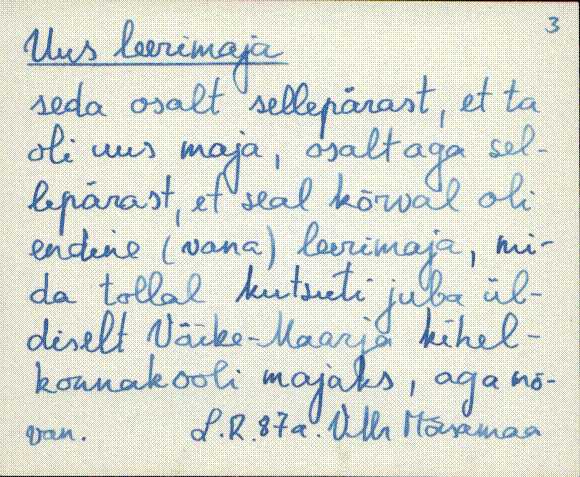 3
Uus leerimaja
seda osalt sellepärast, et ta
oli uus maja, osalt aga sel-
lepärast, et seal kõrval oli
endine (vana) leerimaja, mi-
da tollal kutsuti juba ül-
diselt Väike-Maarja kihel-
konnakooli majaks, aga
van. L.R. 87a.